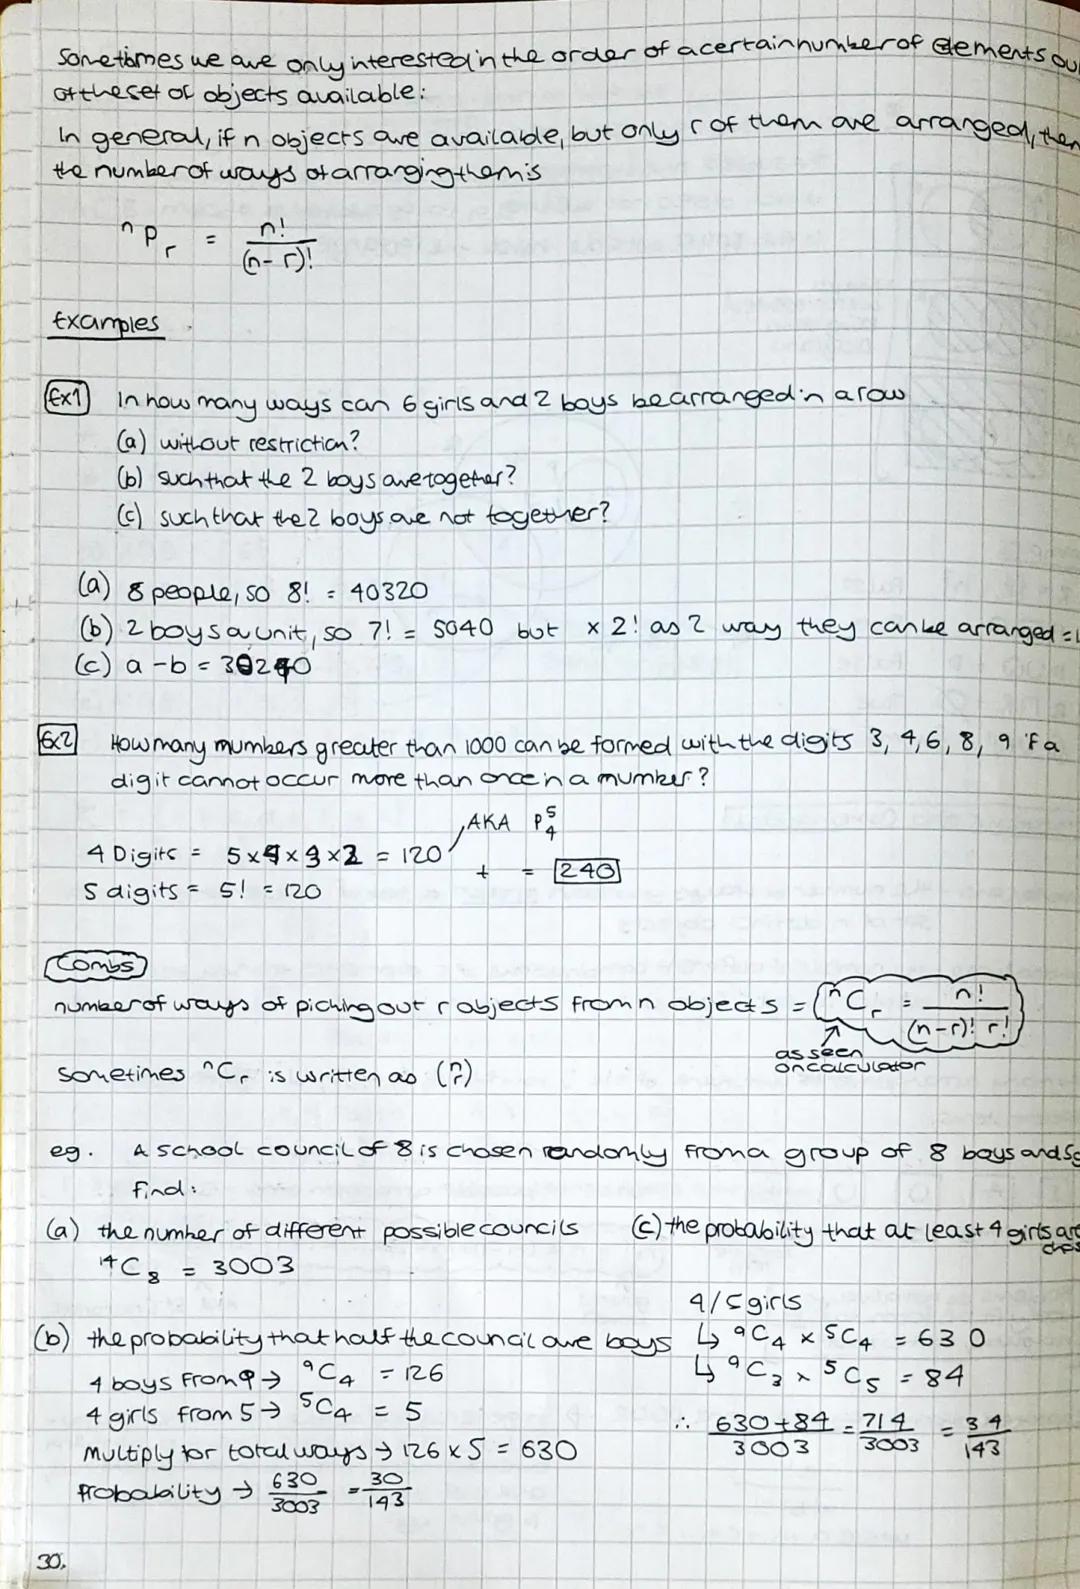 Sometimes we are only interested in the order of a certain number of elements ou
of the set of objects available:
In general, if n objects are available, but only r of them are arranged, then
the number of ways of arranging them is
ⁿPᵣ = n!/(n-r)!
Examples
Ex1 In how many ways can 6 girls and 2 boys be arranged in a row
(a) without restriction?
(b) such that the 2 boys are together?
(c) such that the 2 boys are not together?
(a) 8 people, so 8! = 40320
(b) 2 boys a unit, so 7! = 5040 but × 2! as 2 way they can be arranged = 1
(c) a - b = 30240
Ex2 How many numbers greater than 1000 can be formed with the digits 3, 4, 6, 8, 9 if a
digit cannot occur more than once in a number?
AKA P⁵₄
4 Digits = 5 × 4 × 3 × 2 = 120
+ = 240
5 digits = 5! = 120
Combs
number of ways of picking out r objects from n objects = ⁿCᵣ = n!/(n-r)! r!
as seen
on calculator
sometimes ⁿCᵣ is written as (ⁿᵣ)
eg. A school council of 8 is chosen randomly from a group of 8 boys and 5g
find:
(a) the number of different possible councils
¹⁴C₈ = 3003
(b) the probability that half the council are boys
4 boys from 9 → ⁹C₄ = 126
4 girls from 5 → ⁵C₄ = 5
Multiply for total ways → 126 × 5 = 630
Probability → 630/3003 = 30/143
(c) the probability that at least 4 girls are
chos
4/5 girls
↳ ⁹C₄ × ⁵C₄ = 630
↳ ⁹C₃ × ⁵C₅ = 84
∴ 630+84/3003 = 714/3003 = 34/143
30.